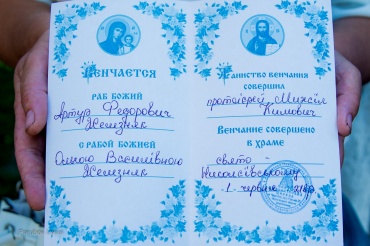 Венчается
раб Божий
Артур Федорович
Железняк
с рабой Божией
Ольгою Василівною
Железняк
Таинство венчания
совершил
протоієрей Михаїл
Климович
Венчание совершено
в храме
свято -
Николаївському
1 червня